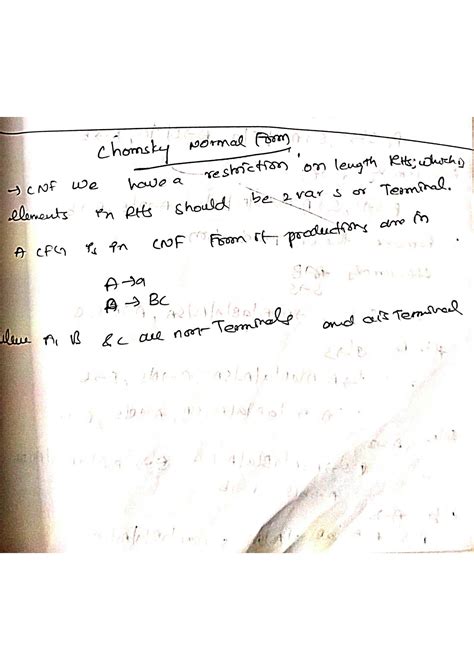 Chomsky Normal Form
→ CNF we have a restriction on length RHS; which
elements in RHS should be 2 var s or Terminal.
A CFG is in CNF Form if productions are in
A→a
A → BC
A, B & C are non-Terminals and a is Terminal